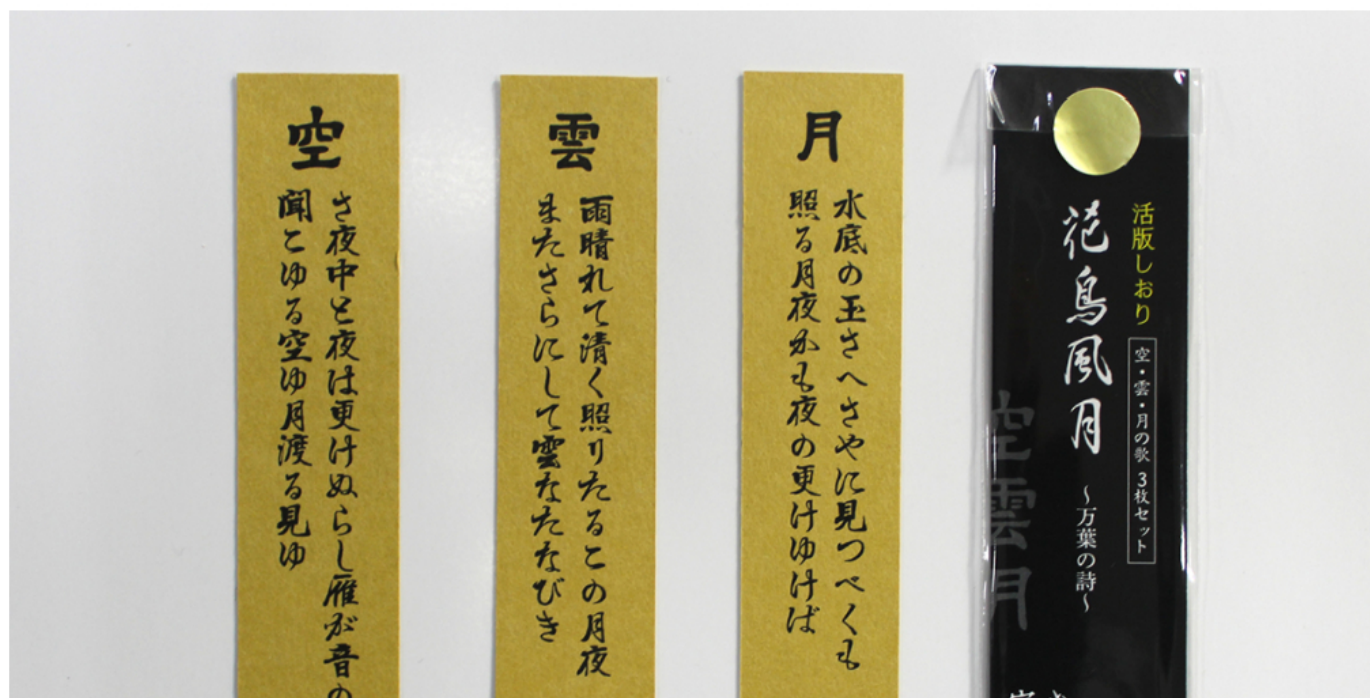 空
さ夜中と夜は更けぬらし雁が音の
聞こゆる空ゆ月渡る見ゆ
雲
雨晴れて清く照りたるこの月夜
またさらにして雲なたなびき
月
水底の玉さへさやに見つべくも
照る月夜かも夜の更けゆけば
活版しおり
空・雲・月の歌 3枚セット
花鳥風月
〜万葉の詩〜
空雲月